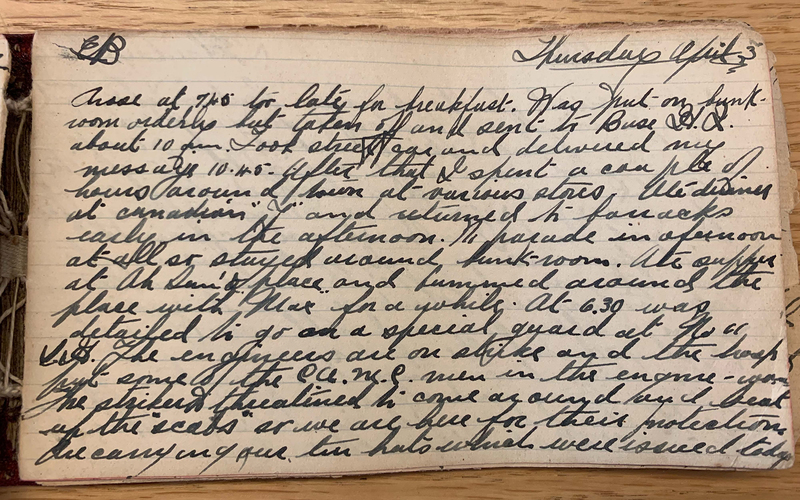 EB Thursday April 3
Arose at 7.45 too late for breakfast. Was put on bunk-
room orderly but taken off and sent to Base H.Q.
about 10 a.m. Took street car and delivered my
message 10.45. After that I spent a couple of
hours around town at various stores. Ate dinner
at Canadian "Y" and returned to barracks
early in the afternoon. No parade in afernoon
at all so stayed around bunk-room. Ate supper
at Ah place and bummed around the
place with "Mac" for a while. At 6.30 was
detailed to go on a special guard at No 11
The engineers are on strike and the hosp
put some of the C.A.M.C. men in the engine-room
The strikers threatened to come around and beat
up the "scabs" so we are here for their protection
Are carrying our tin hats which were issued today